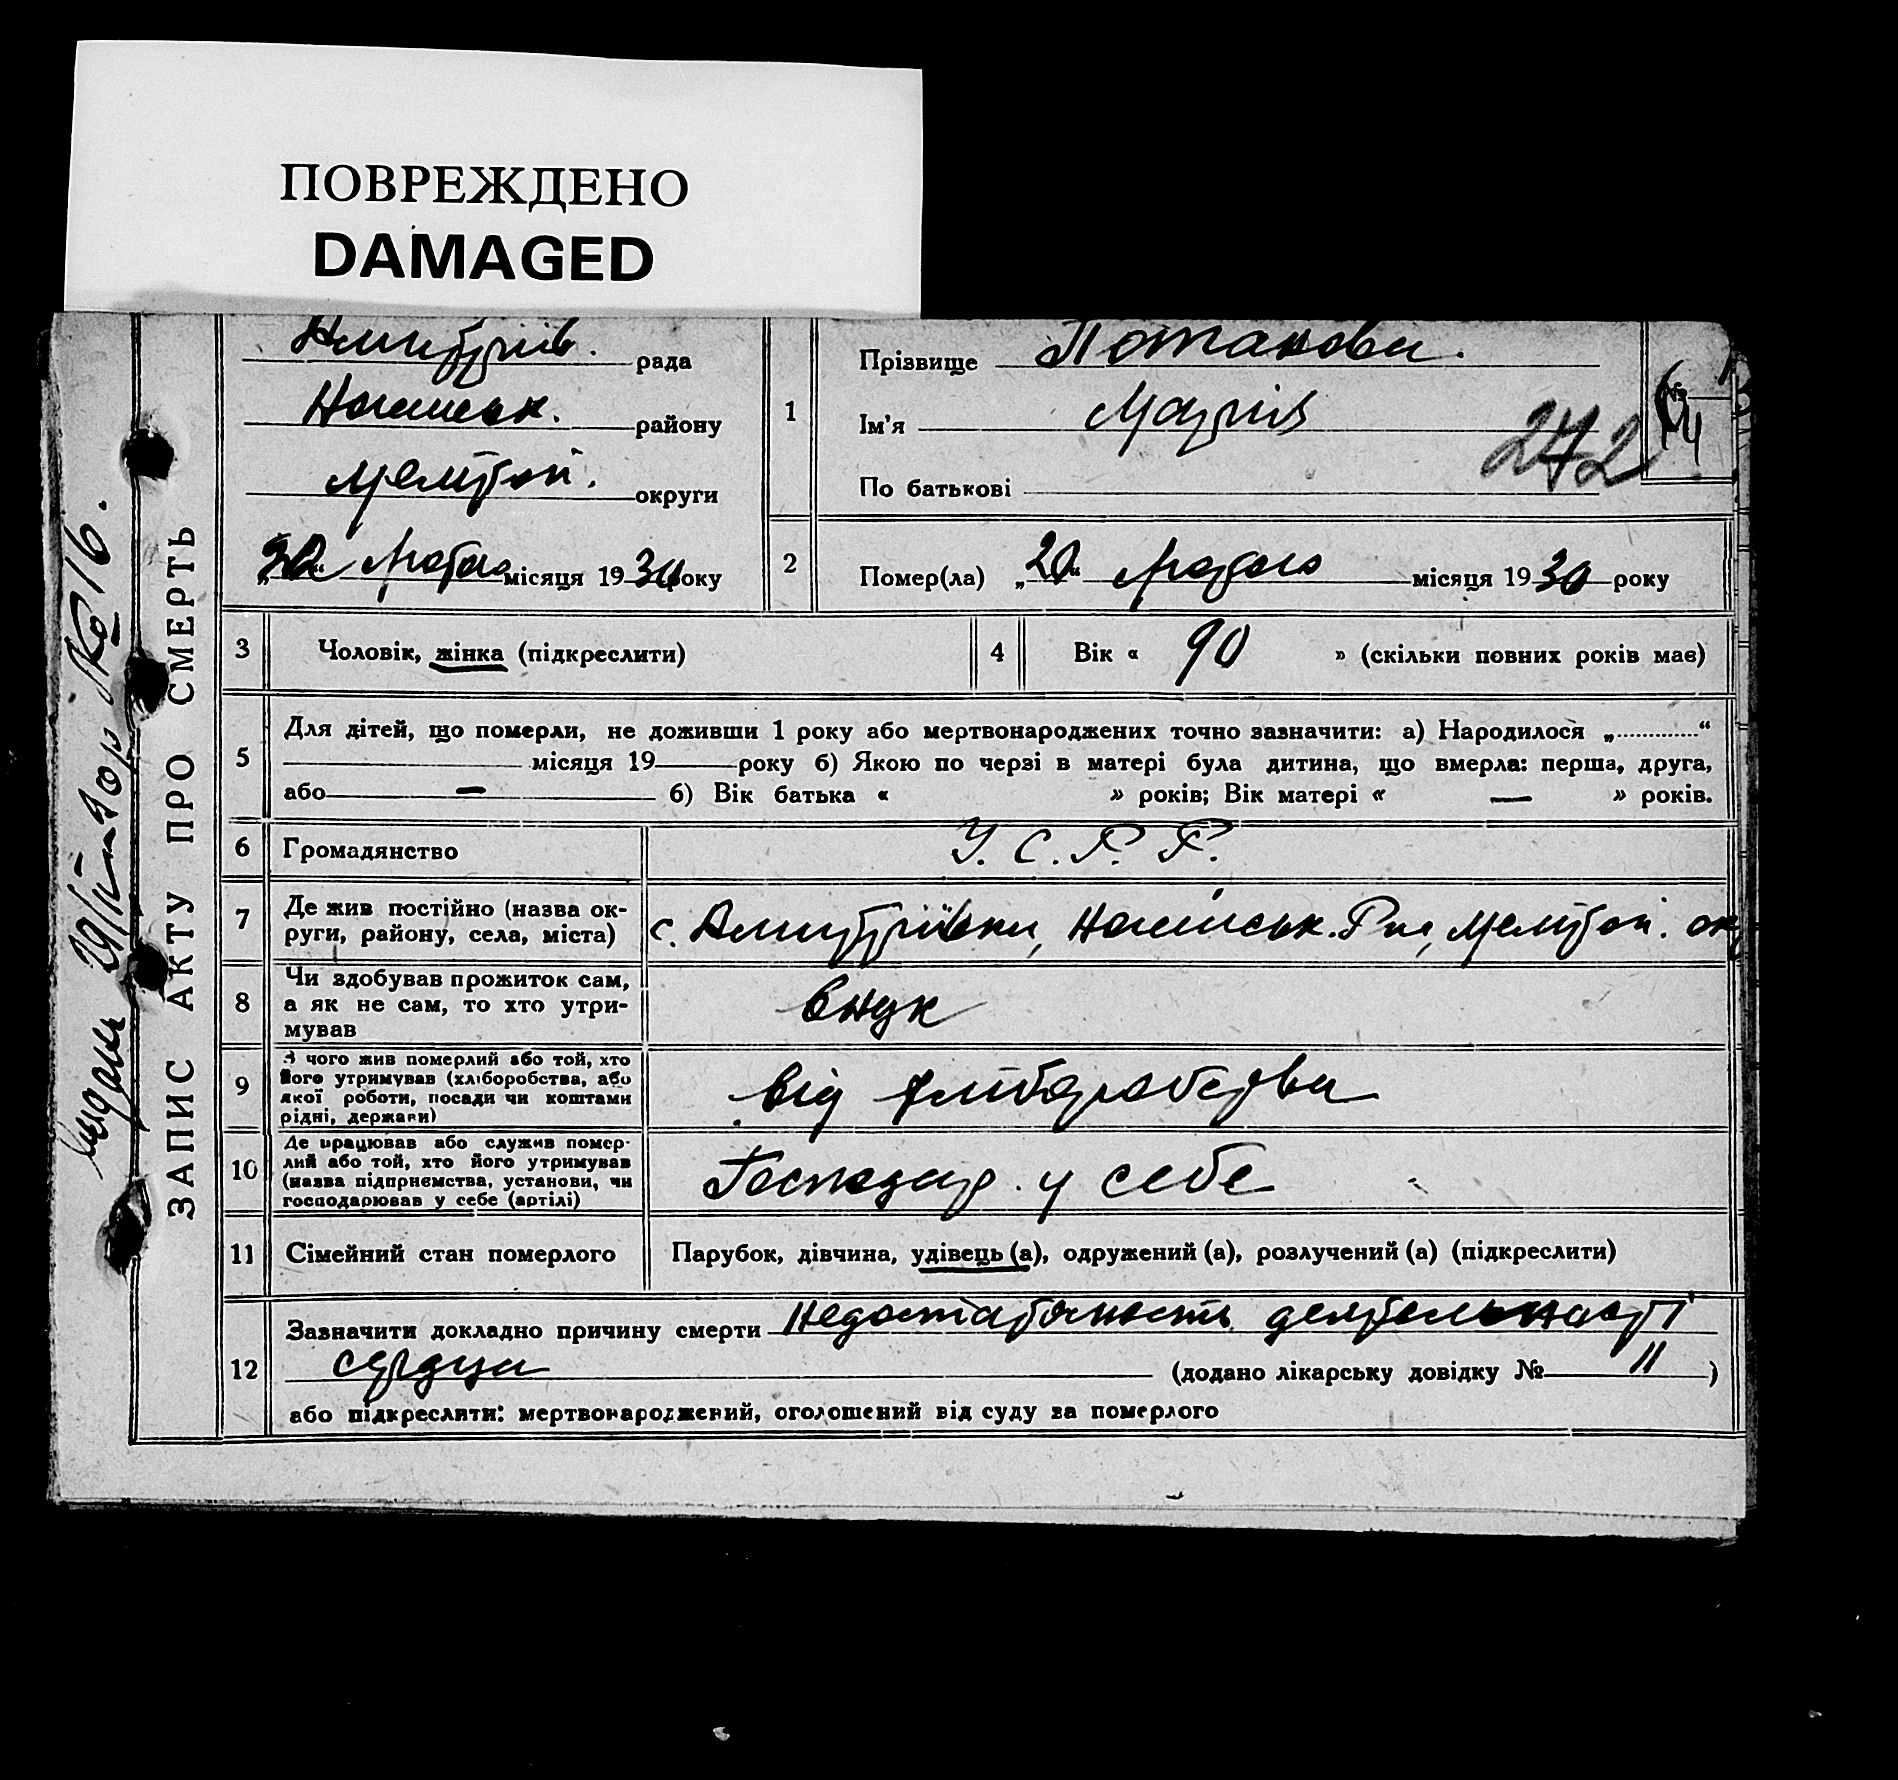 ПОВРЕЖДЕНО
DAMAGED
ЗАПИС АКТУ ПРО СМЕРТЬ
рада
району
округи
місяця 19 року
1
Прізвище Потапова.
Ім'я Марія
По батькові
272
2
Помер(ла) „20“ лютого місяця 1930 року
3
Чоловік, жінка (підкреслити)
4
Вік « 90 » (скільки повних років має)
5
Для дітей, що померли, не доживши 1 року або мертвонароджених точно зазначити: а) Народилося „.............“
місяця 19 року б) Якою по черзі в матері була дитина, що вмерла: перша, друга,
або — б) Вік батька « » років; Вік матері « — » років.
6
Громадянство
У. С. Р. Р.
7
Де жив постійно (назва ок-
руги, району, села, міста)
с.
8
Чи здобував прожиток сам,
а як не сам, то хто утри-
мував
внук
9
З чого жив померлий або той, хто
його утримував (хліборобства, або
якої роботи, посади чи коштами
рідні, держави)
від хліборобства
10
Де працював або служив помер-
лий або той, хто його утримував
(назва підприємства, установи, чи
господарював у себе (артілі)
Господар. у себе
11
Сімейний стан померлого
Парубок, дівчина, удівець (а), одружений (а), розлучений (а) (підкреслити)
12
Зазначити докладно причину смерти
сердца (додано лікарську довідку № 11 )
або підкреслити: мертвонароджений, оголошений від суду за померлого